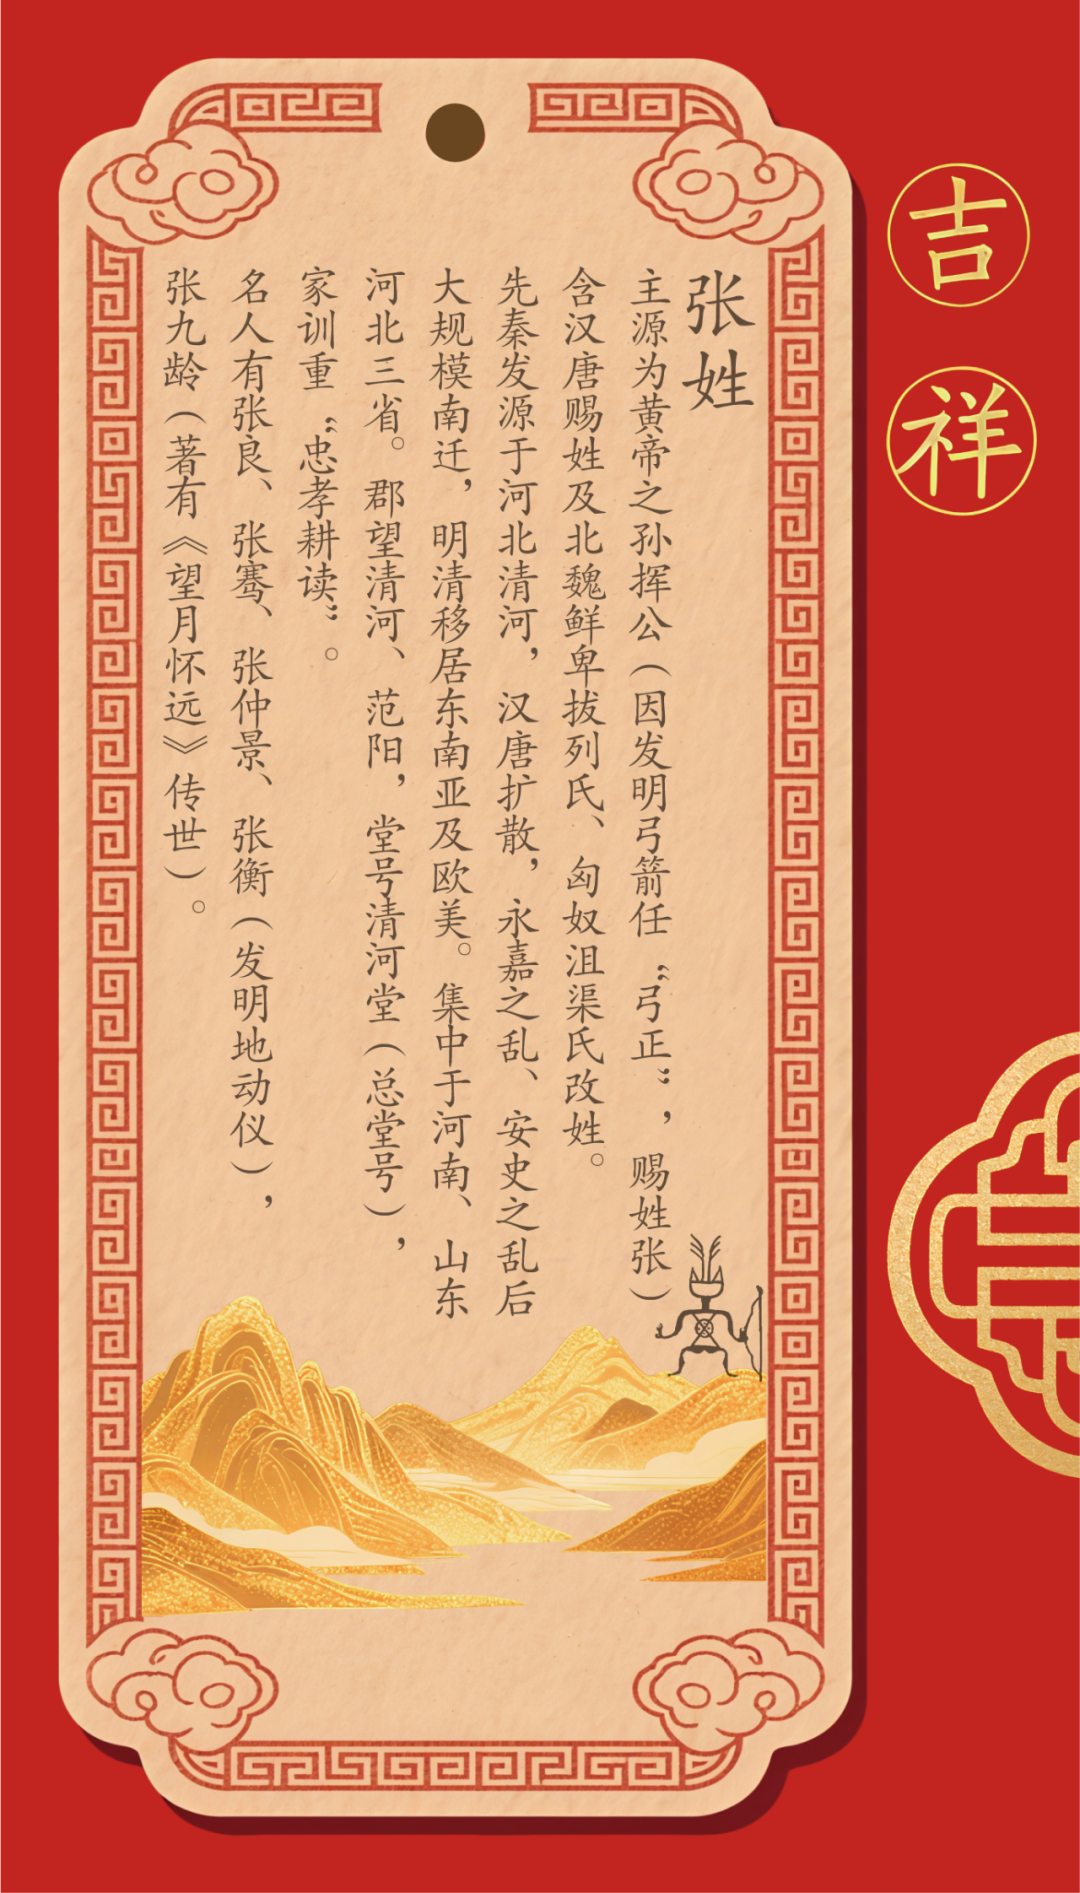 吉祥
张姓
主源为黄帝之孙挥公（因发明弓箭任“弓正”，赐姓张）
含汉唐赐姓及北魏鲜卑拔列氏、匈奴沮渠氏改姓。
先秦发源于河北清河，汉唐扩散，永嘉之乱、安史之乱后
大规模南迁，明清移居东南亚及欧美。集中于河南、山东
河北三省。郡望清河、范阳，堂号清河堂（总堂号），
家训重“忠孝耕读”。
名人有张良、张骞、张仲景、张衡（发明地动仪），
张九龄（著有《望月怀远》传世）。